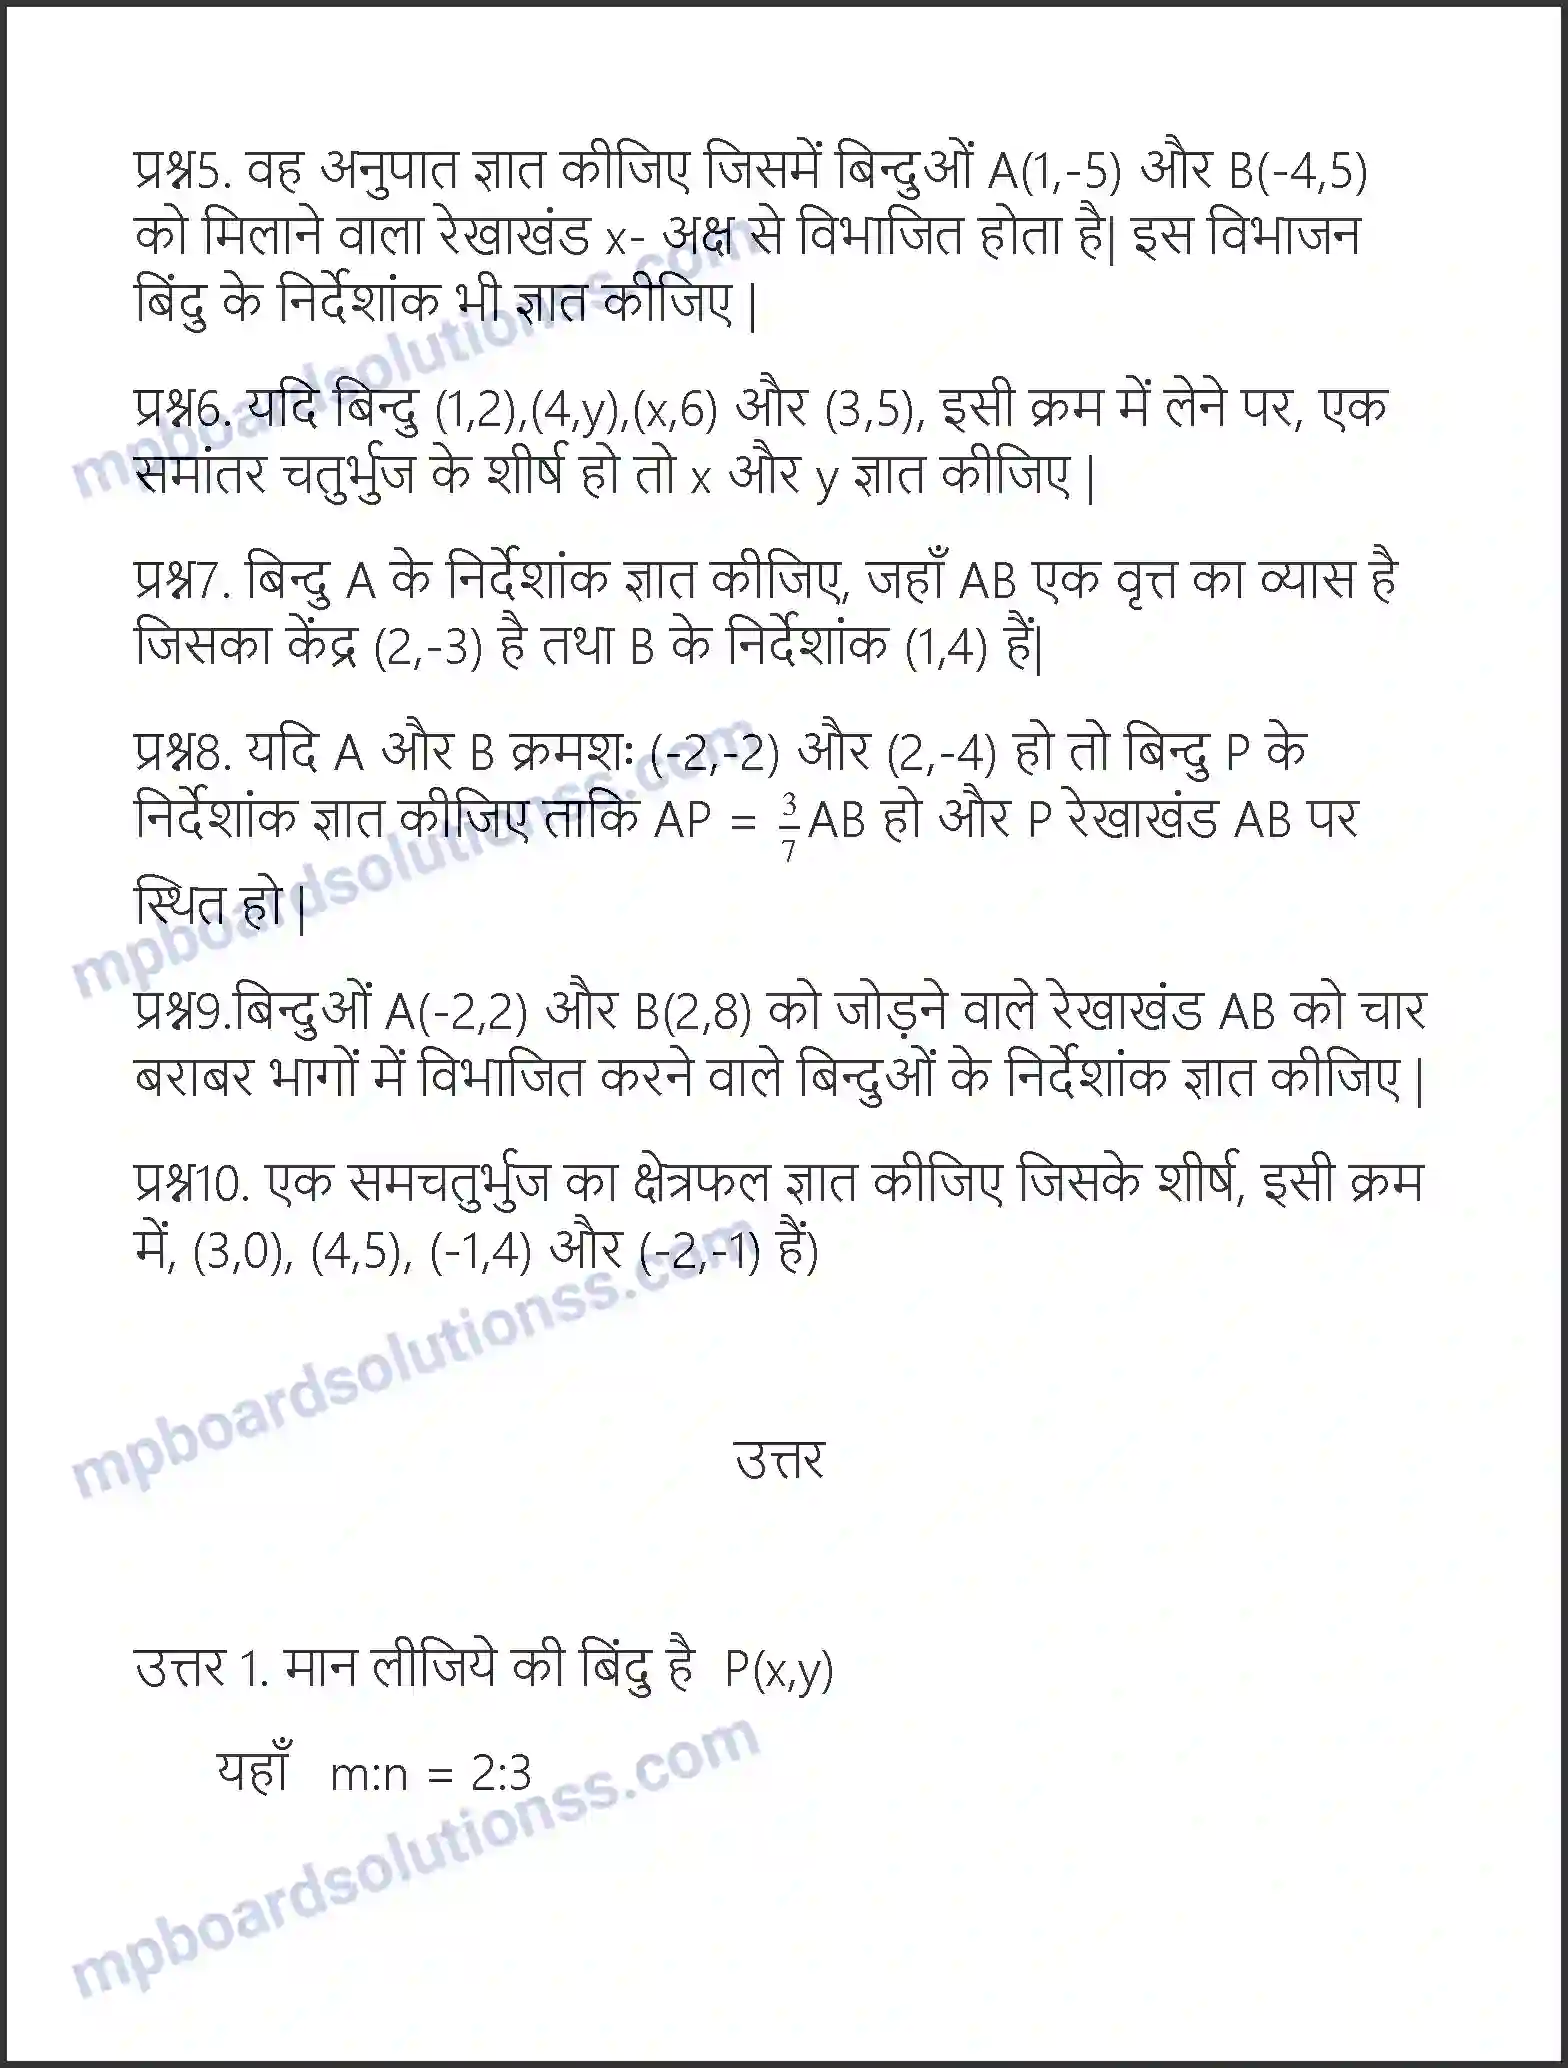 प्रश्न5. वह अनुपात ज्ञात कीजिए जिसमें बिन्दुओं A(1,-5) और B(-4,5)
को मिलाने वाला रेखाखंड x- अक्ष से विभाजित होता है| इस विभाजन
बिंदु के निर्देशांक भी ज्ञात कीजिए |
प्रश्न6. यदि बिन्दु (1,2),(4,y),(x,6) और (3,5), इसी क्रम में लेने पर, एक
समांतर चतुर्भुज के शीर्ष हो तो x और y ज्ञात कीजिए |
प्रश्न7. बिन्दु A के निर्देशांक ज्ञात कीजिए, जहाँ AB एक वृत्त का व्यास है
जिसका केंद्र (2,-3) है तथा B के निर्देशांक (1,4) हैं|
प्रश्न8. यदि A और B क्रमशः (-2,-2) और (2,-4) हो तो बिन्दु P के
निर्देशांक ज्ञात कीजिए ताकि AP = 3/7 AB हो और P रेखाखंड AB पर
स्थित हो |
प्रश्न9.बिन्दुओं A(-2,2) और B(2,8) को जोड़ने वाले रेखाखंड AB को चार
बराबर भागों में विभाजित करने वाले बिन्दुओं के निर्देशांक ज्ञात कीजिए |
प्रश्न10. एक समचतुर्भुज का क्षेत्रफल ज्ञात कीजिए जिसके शीर्ष, इसी क्रम
में, (3,0), (4,5), (-1,4) और (-2,-1) हैं)
उत्तर
उत्तर 1. मान लीजिये की बिंदु है P(x,y)
यहाँ m:n = 2:3
mpboardsolutionss.com
mpboardsolutionss.com
mpboardsolutionss.com
mpboardsolutionss.com